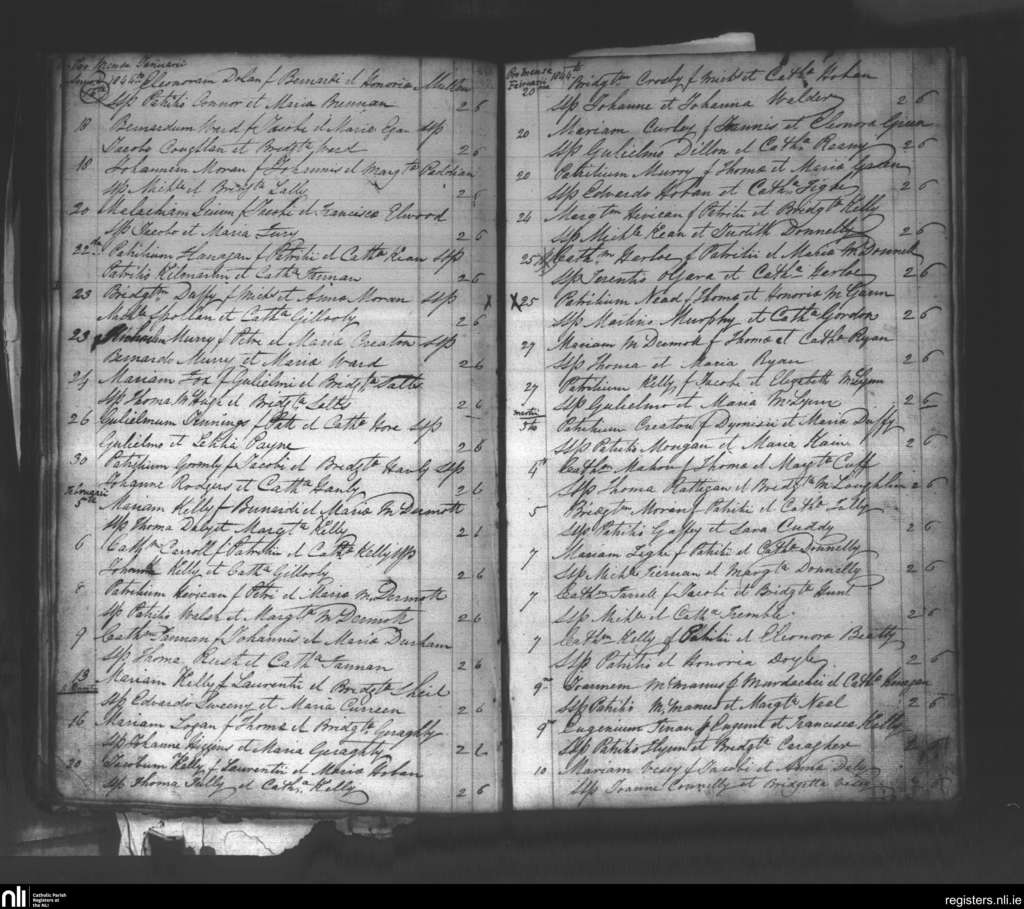 Pro Mense Januarii
Anno 1844 Eleonoram Dolan f Bernardi et Honoria Mullin
Ssp Patritio Connor et Maria Brennan 2 6
18 Bernardum Ward f Jacobi et Maria Egan Ssp
Jacobo Coughlan et Bridgta Ward 2 6
18 Johannem Moran f Johannis et Margta
Ssp Michle et Bridgta Lally 2 6
20 Malachiam f Jacobi et Francisca Elwood
Ssp Jacobo et Maria Fury 2 6
22th Patritium Flanagan f Patritii et Catha Kean Ssp
Patritio Kilmartin et Catha Keenan 2 6
23 Bridgtm Duffy f Michl et Anna Moran Ssp
Michle et Catha Gillooly 2 6
23 Michaelem Murry f Petri et Maria Creaton Ssp
Bernardo Murry et Maria Ward 2 6
24 Mariam Fox f Gulielmi et Bridgta
Ssp Thoma McHugh et Bridgta 2 6
26 Gulielmum Jennings f Patt et Catha Hore Ssp
Gulielmo et Letitia Payne 2 6
30 Patritium Gormly f Jacobi et Bridgta Hanly Ssp
Johanne Rodgers et Catha Hanly 2 6
Februarii
5th Mariam Kelly f Bernardi et Maria McDermott
Ssp Thoma Daly et Margta Kelly 2 6
6 Cathm Carroll f Patritii et Catha Kelly Ssp
Johanne Kelly et Catha Gillooly 2 6
8 Patritium Hevican f Petri et Maria McDermott
Ssp Patritio Welsh et Margta McDermott 2 6
9 Cathm Fannan f Johannis et Maria Durham
Ssp Thoma Rush et Catha Fannan 2 6
13 Mariam Kelly f Laurentii et Bridgta Sheil
Ssp Edvardo Sweeny et Maria Curreen 2 6
16 Mariam Logan f Thoma et Bridgta Geraghty
Ssp Johanne Higgins et Maria Geraghty 2 6
20 Jacobum Kelly f Laurentii et Maria Hoban
Ssp Thoma Tully et Catha Kelly 2 6
Pro Mense 1844
Februarii
20 Bridgtm Crosby f Michl et Catha Hoban
Ssp Johanne et Johanna Walder 2 6
20 Mariam Curley f Joannis et Eleonora Green
Ssp Gulielmo Dillon et Catha Reany 2 6
20 Patritium Murry f Thoma et Maria
Ssp Edvardo Hoban et Catha Tighe 2 6
24 Margtm Hevican f Patritii et Bridgta Kelly
Ssp Michle Kean et Judith Donnelly 2 6
25 Cathm Herloe f Patritii et Maria McDonnell
Ssp Terentio OGara et Catha Herloe 2 6
X 25 Patritium Nead f Thoma et Honoria McGann
Ssp Martino Murphy et Catha Gordon 2 6
27 Mariam McDermott f Thoma et Catha Ryan
Ssp Thoma et Maria Ryan 2 6
27 Patritium Kelly f Jacobi et Elizabeth McLynn
Ssp Gulielmo et Maria McLynn 2 6
Martii
5th Patritium Creaton f Dyonisii et Maria Duffy
Ssp Patritio Mongan et Maria Hain 2 6
4th Cathm Mahon f Thoma et Margta Cuff
Ssp Thoma Rattigan et Bridgta McLaughlin 2 6
5 Bridgtm Moran f Patritii et Catha Lally
Ssp Patritio Gaffey et Sara Cuddy 2 6
7 Mariam Tighe f Patritii et Catha Donnelly
Ssp Michle Tiernan et Margta Donnelly 2 6
7 Cathm Farrell f Jacobi et Bridgta Hunt
Ssp Michle et Catha Tremble 2 6
7 Cathm Kelly f Patritii et Eleonora Beatty
Ssp Patritio et Honoria Doyle 2 6
9th Joannem McManus f Murdachi et Catha Finagan
Ssp Patritio McManus et Margta Neel 2 6
9th Eugenium Finan f Eugenii et Francisca Kielty
Ssp Patritio Flynn et Bridgta Caragher 2 6
10 Mariam Vesey f Jacobi et Anna Daly
Ssp Joanne Connelly et Bridgitta Vesey 2 6
nli Catholic Parish
Registers at
the NLI
registers.nli.ie